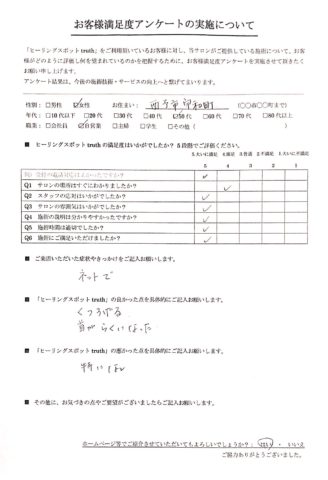 お客様満足度アンケートの実施について
「ヒーリングスポット truth」をご利用頂いているお客様に対し、当サロンがご提供している施術について、お客
様がどのように評価し何を望まれているのかを把握するために、お客様満足度アンケートを実施させて頂きたく
お願い申し上げます。
アンケート結果は、今後の施術技術・サービスの向上へと繋げてまいります。
性別: □男性 ☑女性 お住まい: (○○市○○町まで)
年代: □10代以下 □20代 □30代 □40代 ☑50代 □60代 □70代 □80代以上
職業: □会社員 ☑自営業 □主婦 □学生 □その他( )
■ ヒーリングスポット truth の満足度はいかがでしたか? 5段階でご評価ください。
5 大いに満足 4 満足 3 普通 2 不満足 1 大いに不満
5 4 3 2 1
例) 受付の電話対応はよかったですか? ✓
Q1 サロンの場所はすぐにわかりましたか? ✓
Q2 スタッフの応対はいかがでしたか? ✓
Q3 サロンの雰囲気はいかがでしたか? ✓
Q4 施術の説明は分かりやすかったですか? ✓
Q5 施術時間は適切でしたか? ✓
Q6 施術にご満足いただけましたか? ✓
■ ご来店いただいた症状やきっかけをご記入お願いします。
ネットで
■ 「ヒーリングスポット truth」の良かった点を具体的にご記入お願いします。
くつろげる
首がらくになった
■ 「ヒーリングスポット truth」の悪かった点を具体的にご記入お願いします。
特になし
■ その他に、お気づきの点やご要望がございましたらご記入お願いします。
ホームページ等でご紹介させていただいてもよろしいでしょうか?: はい ・ いいえ
ご協力ありがとうございました。